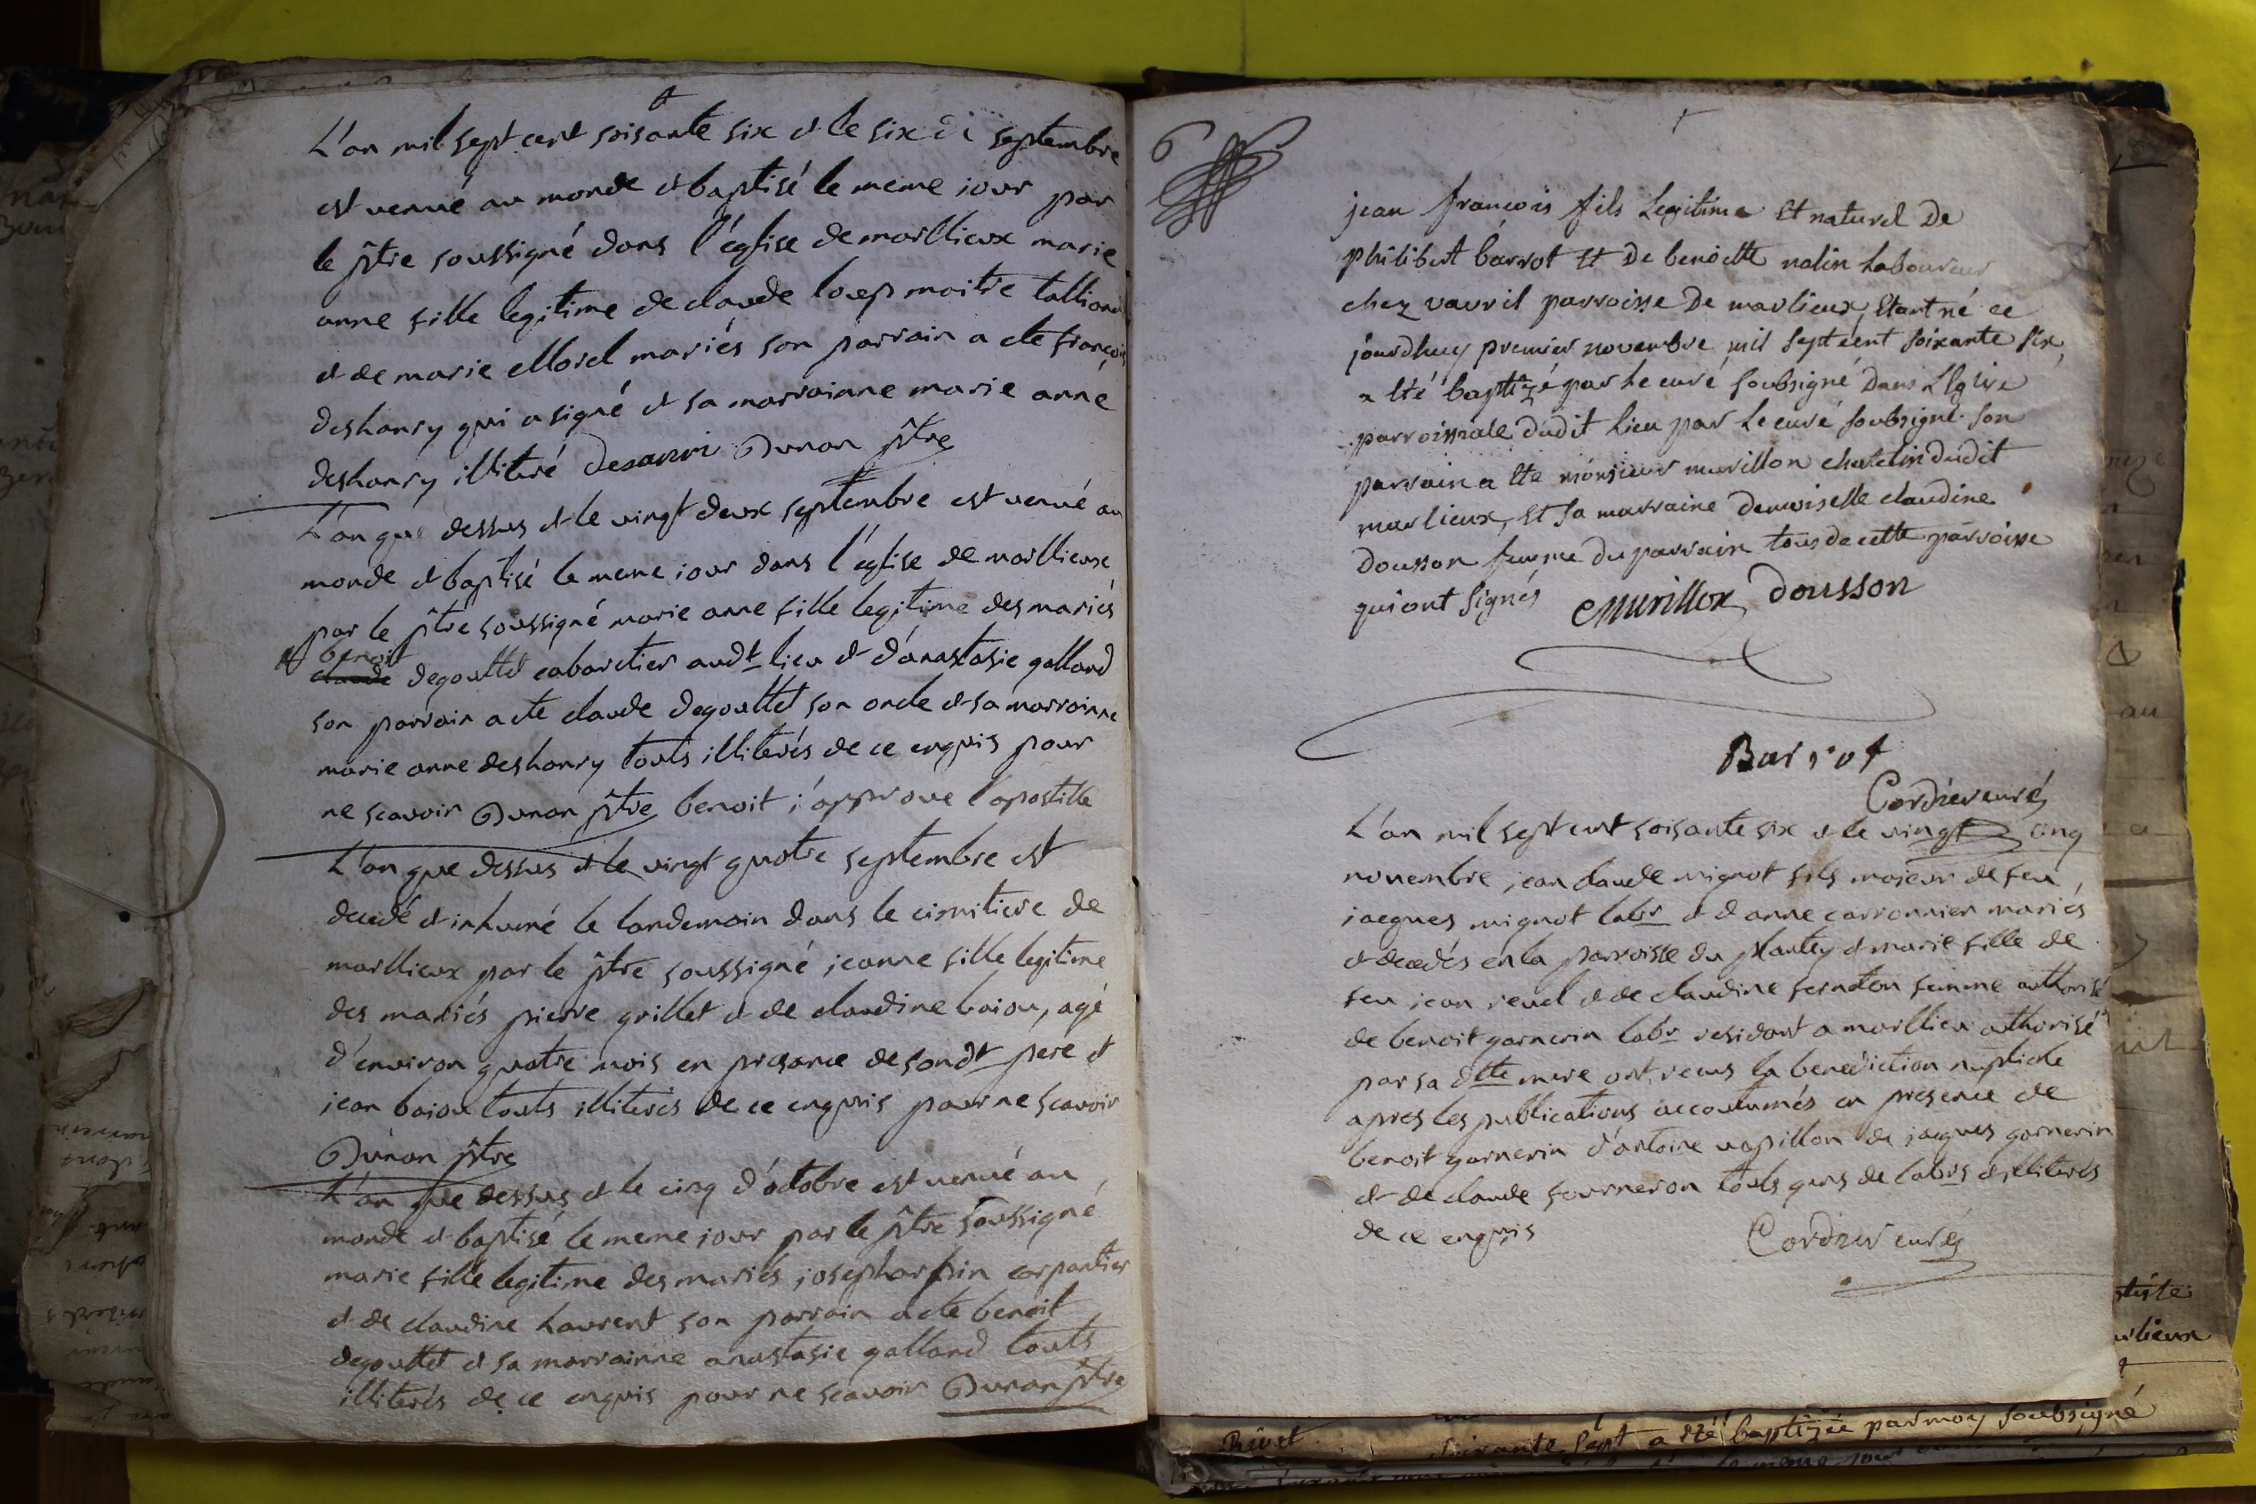 L'an mil sept cent soisante six et le six septembre
est venué au monde et baptisé le meme iour par
le ptre soussigné dans l'église de marllieux marie
anne fille legitime de claude loup maitre talliand
et de marie Morel mariés son parrain a ete françois
deshanry qui a signé et sa marrainne marie anne
deshanry illiteré desanri Dunan ptre
L'an que dessus et le vingt deux septembre est venué au
monde et baptisé le meme iour dans l'église de marllieux
par le ptre soussigné marie anne fille legitime des mariés
benoit
claude degouttet cabaretier audt lieu et d'anastasie galland
son parrain a ete claude degouttet son oncle et sa marrainne
marie anne deshanry touts illiterés de ce enquis pour
ne scavoir Dunan ptre benoit i'approuve l'apostille
L'an que dessus et le vingt quatre septembre est
decedé et inhumé le landemain dans le cimitiere de
marllieux par le ptre soussigné jeanne fille legitime
des mariés pierre grillet et de claudine baion, agé
d'environ quatre mois en presance de sondt pere et
jean baion touts illiterés de ce enquis pour ne scavoir
Dunan ptre
L'an que dessus et le cinq d'octobre est venué au
monde et baptisé le meme iour par le ptre soussigné
marie fille legitime des mariés joseph carpantier
et de claudine Laurent son parrain a ete benoit
degouttet et sa marrainne anastasie galland touts
illiterés de ce enquis pour ne scavoir Dunan ptre
6
jean françois fils Legitime Et naturel De
philibert barrot Et De benoitte nalin Laboureur
chez vavril parroisse De marlieux, Etant né ce
jourdhuy premier novembre mil sept cent soixante six,
a Eté baptizé par Le curé soubsigné Dans L'Eglise
parroissiale dudit Lieu par Le curé soubsigné. son
parrain a Ete monsieur murillon chatelin dudit
marlieux, Et sa marraine demoiselle claudine
dousson femme du parrain tous de cette parroisse
qui ont signés Murillon dousson
Barrot
Cordier curé
L'an mil sept cent soisante six et le vingt cinq
novembre jean claude mignot fils majeur de feu
jacques mignot labr et d'anne carronnier mariés
et decedés en la parroisse du plantey et marie fille de
feu jean revel et de claudine femme authorisé
de benoit garnerin labr residant a marllieu authorisé
par sa dtte mere ont recus la benediction nuptiale
apres les publications accoutumés en presence de
benoit garnerin d'antoine papillon de jacques garnerin
et de claude fourneron touts gens de labrs et illiterés
de ce enquis
Cordier curé
Rivet soixante sept a été baptizée par moy soubsigné